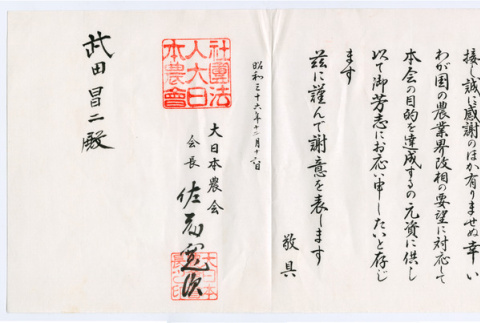 接し誠に感謝のほか有りませぬ幸い
わが国の農業界改相の要望に対応して
本会の目的を達成するの元資に供し
以て御芳志にお応い申したいと存じ
ます
茲に謹んで謝意を表します
敬具
昭和三十六年十二月十六日
社團法
人大日
本農會
大日本農会
会長 佐藤寛次
武田昌二殿